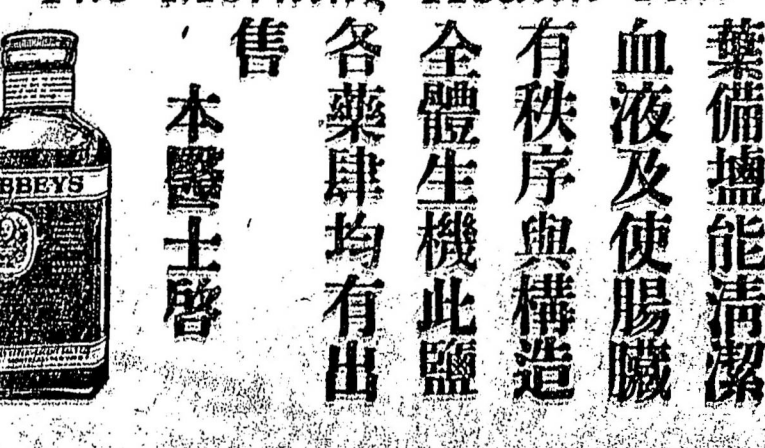 葉備塩能清潔
血液及使腸臟
有秩序與構造
全體生機此鹽
各藥肆均有出
售
本醫士啓
BBEY'S